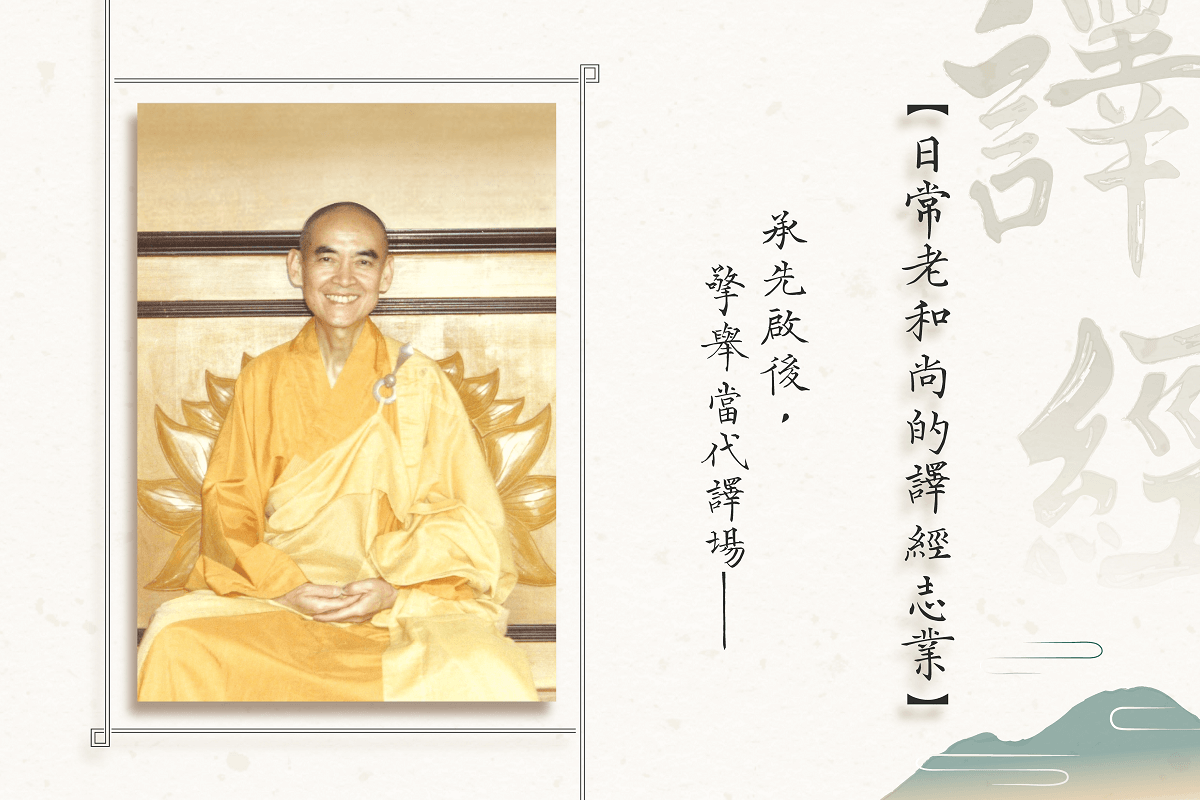 譯經
【日常老和尚的譯經志業】
承先啟後，
擎舉當代譯場—